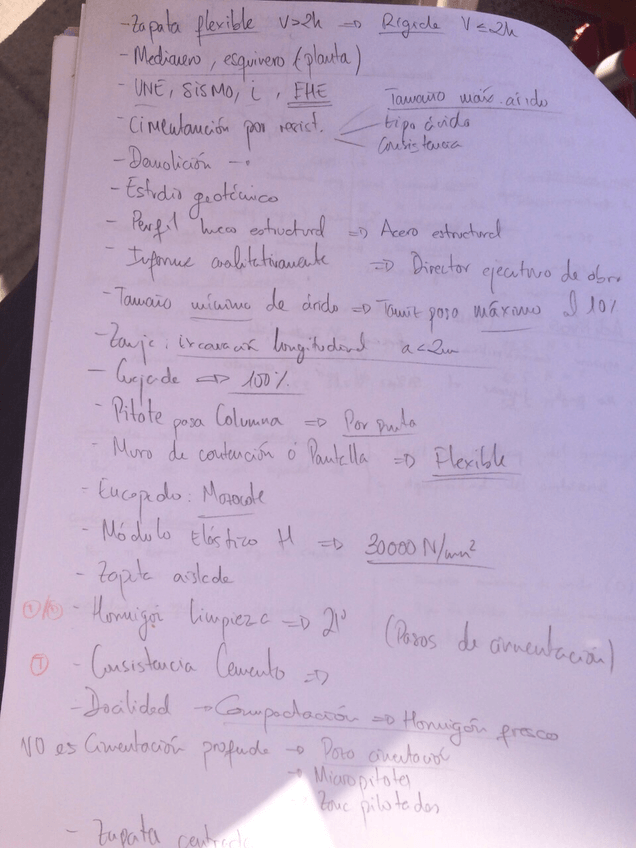 - Zapata flexible V>2h => Rígida V≤2h
- Medianero, esquinero (planta)
- UNE, SISMO, i, EHE
Tamaño máx. árido
- Cimentación por resist.
tipo árido
Consistencia
- Demolición -
- Estudio geotécnico
- Perfil hueco estructural => Acero estructural
- Informe cualitativamente => Director ejecutivo de obra
- Tamaño mínimo de árido => Tamiz pasa máximo el 10%
- Zanja: excavación longitudinal a<2m
- => 100%
- Pilote pasa Columna => Por punta
- Muro de contención ó Pantalla => Flexible
- Encepado:
- Módulo Elástico H => 30000 N/mm²
- Zapata aislada
- Hormigón limpieza => 2º (Pozos de cimentación)
- Consistencia Cemento =>
- Docilidad → Compactación => Hormigón fresco
NO es Cimentación profunda → Pozo cimentación
→ Micropilotes
Zona pilotados
- Zapata centrada